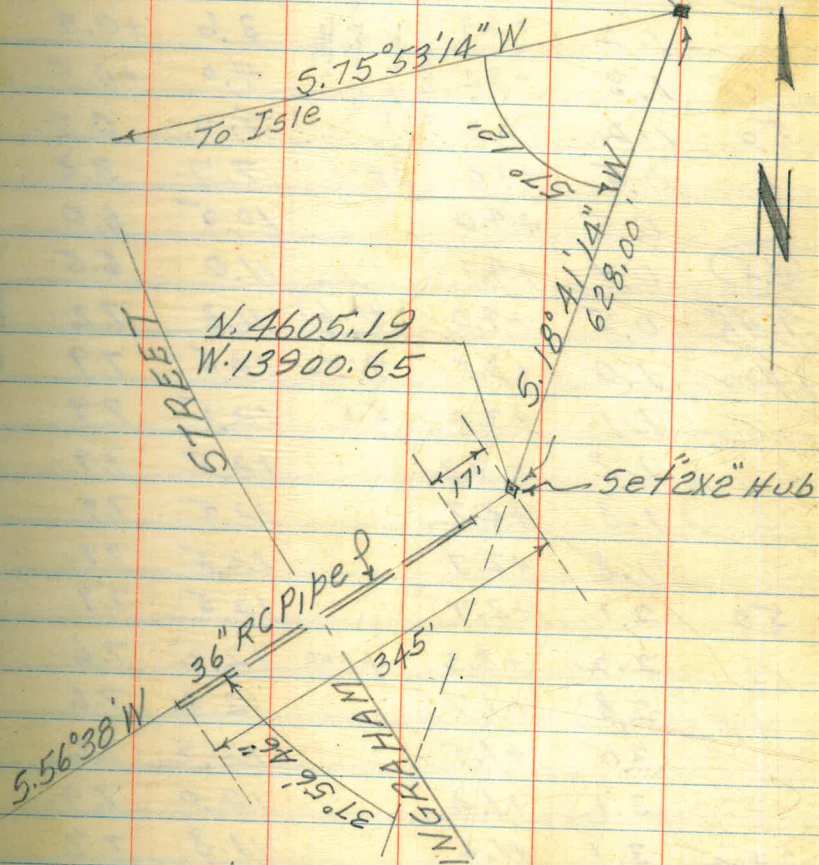 S.75°53'14" W
To Isle
57° 12'
N
S.18°41'14" W
628.00'
N.4605.19
W.13900.65
STREET
17'
Set 2"x2" Hub
36" RC Pipe
345'
S.56°38' W
37°56'46"
INGRAHAM